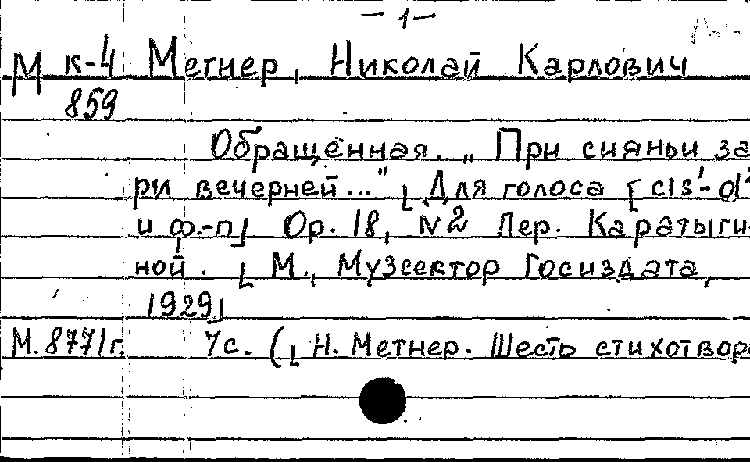 — 1 —
М к-4 Метнер, Николай Карлович
859
Обращённая. „При сияньи за
ри вечерней..." [Для голоса [cis¹-d²
и ф.-п] Op. 18, N2 Пер. Каратыги-
ной. [М., Музсектор Госиздата,
1929]
М.8771г. 7с. ([Н. Метнер. Шесть стихотвор